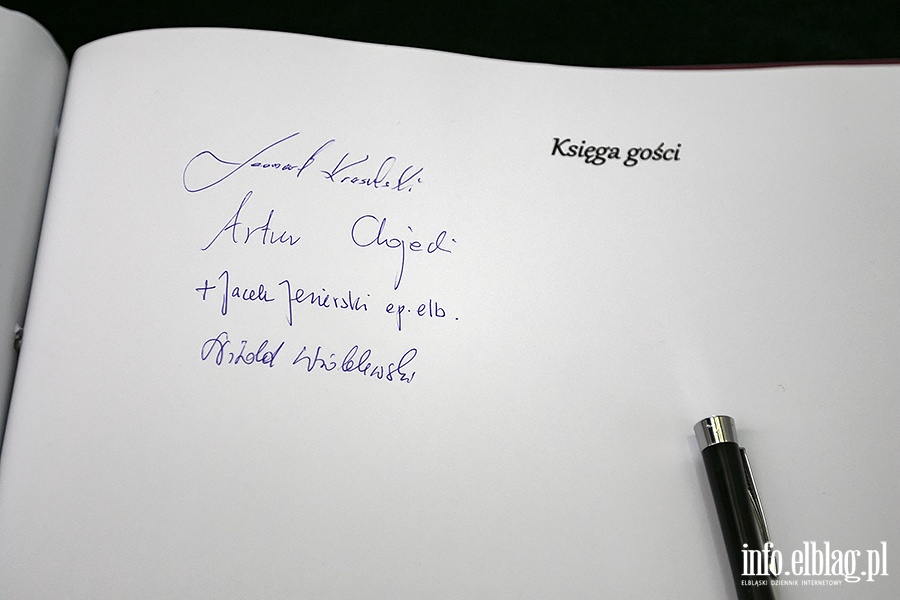 Księga gości
Leonard Krasulski
Artur Chojecki
+ Jacek Jezierski ep. elb.
Witold Wróblewski
info.elblag.pl
ELBLĄSKI DZIENNIK INTERNETOWY